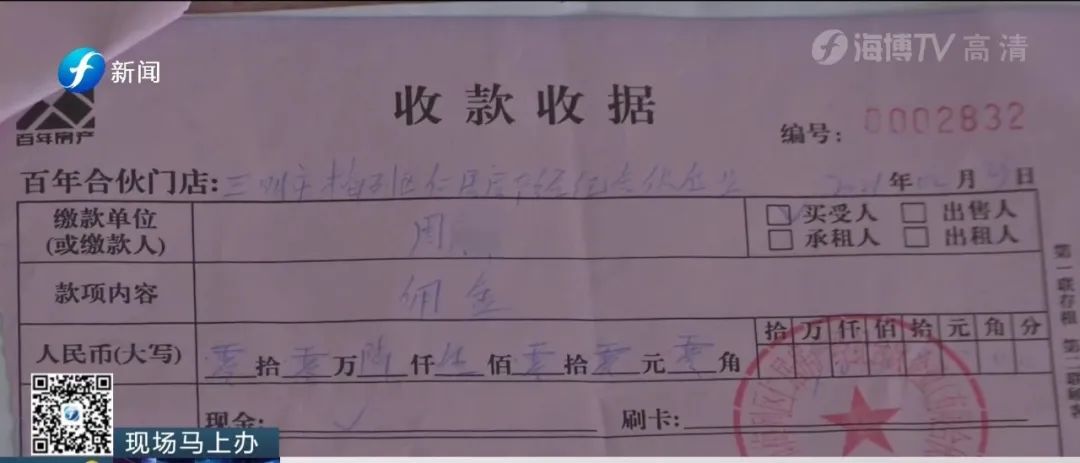 新闻
海博TV 高清
百年房产
收款收据
编号: 0002832
百年合伙门店: 三明市梅列区 年 月 日
缴款单位
(或缴款人)
周
买受人 出售人
承租人 出租人
款项内容
佣金
人民币(大写) 零拾零万陆仟伍佰零拾零元零角
拾万仟佰拾元角分
现金: 刷卡:
第一联存根 第二联顾客
现场马上办